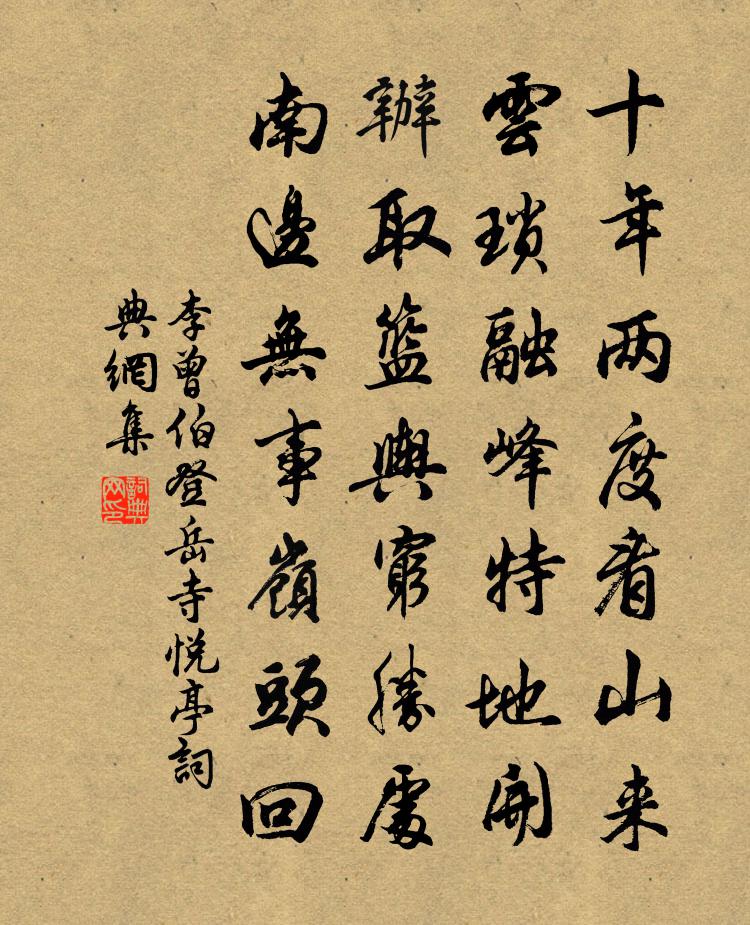 十年两度看山来
雲瑣融峰特地開
辦取籃輿窮勝處
南邊無事嶺頭回
李曾伯登岳寺悦亭詞
典網集
詞典
网印